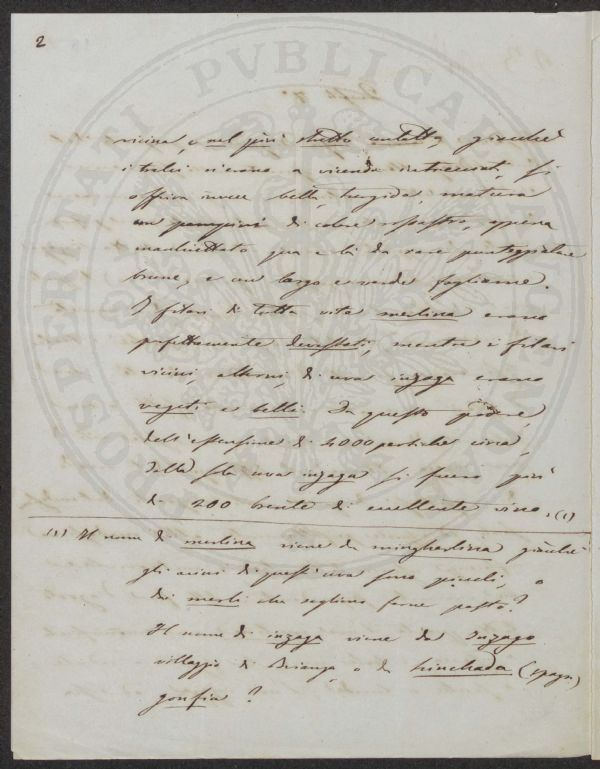 2
vicina, e nel più stretto contatto, giacchè
i tralci s'erano a vicenda intrecciati, si
offriva invece bella, turgida, matura
con di colore rossastro, appena
macchiettato qua e là da rare
brune, e con largo e verde fogliame.
I filari di tutta vite merlina erano
perfettamente devastati, mentre i filari
vicini, alterni, di uva inzaga erano
vegeti e belli. In questo podere,
dell'estensione di 4000 pertiche circa,
dalla sola uva inzaga si fecero più
di 200 brente di eccellente vino. (1)
(1) Il nome di merlina viene da mingherlina giacchè
gli acini di quest'uva sono piccoli, o
dai merli che sogliono farne pasto?
Il nome di inzaga viene da Inzago
villaggio di Brianza, o da hinchada (spagn.)
gonfia?
PROSPERITATI PVBLICAE